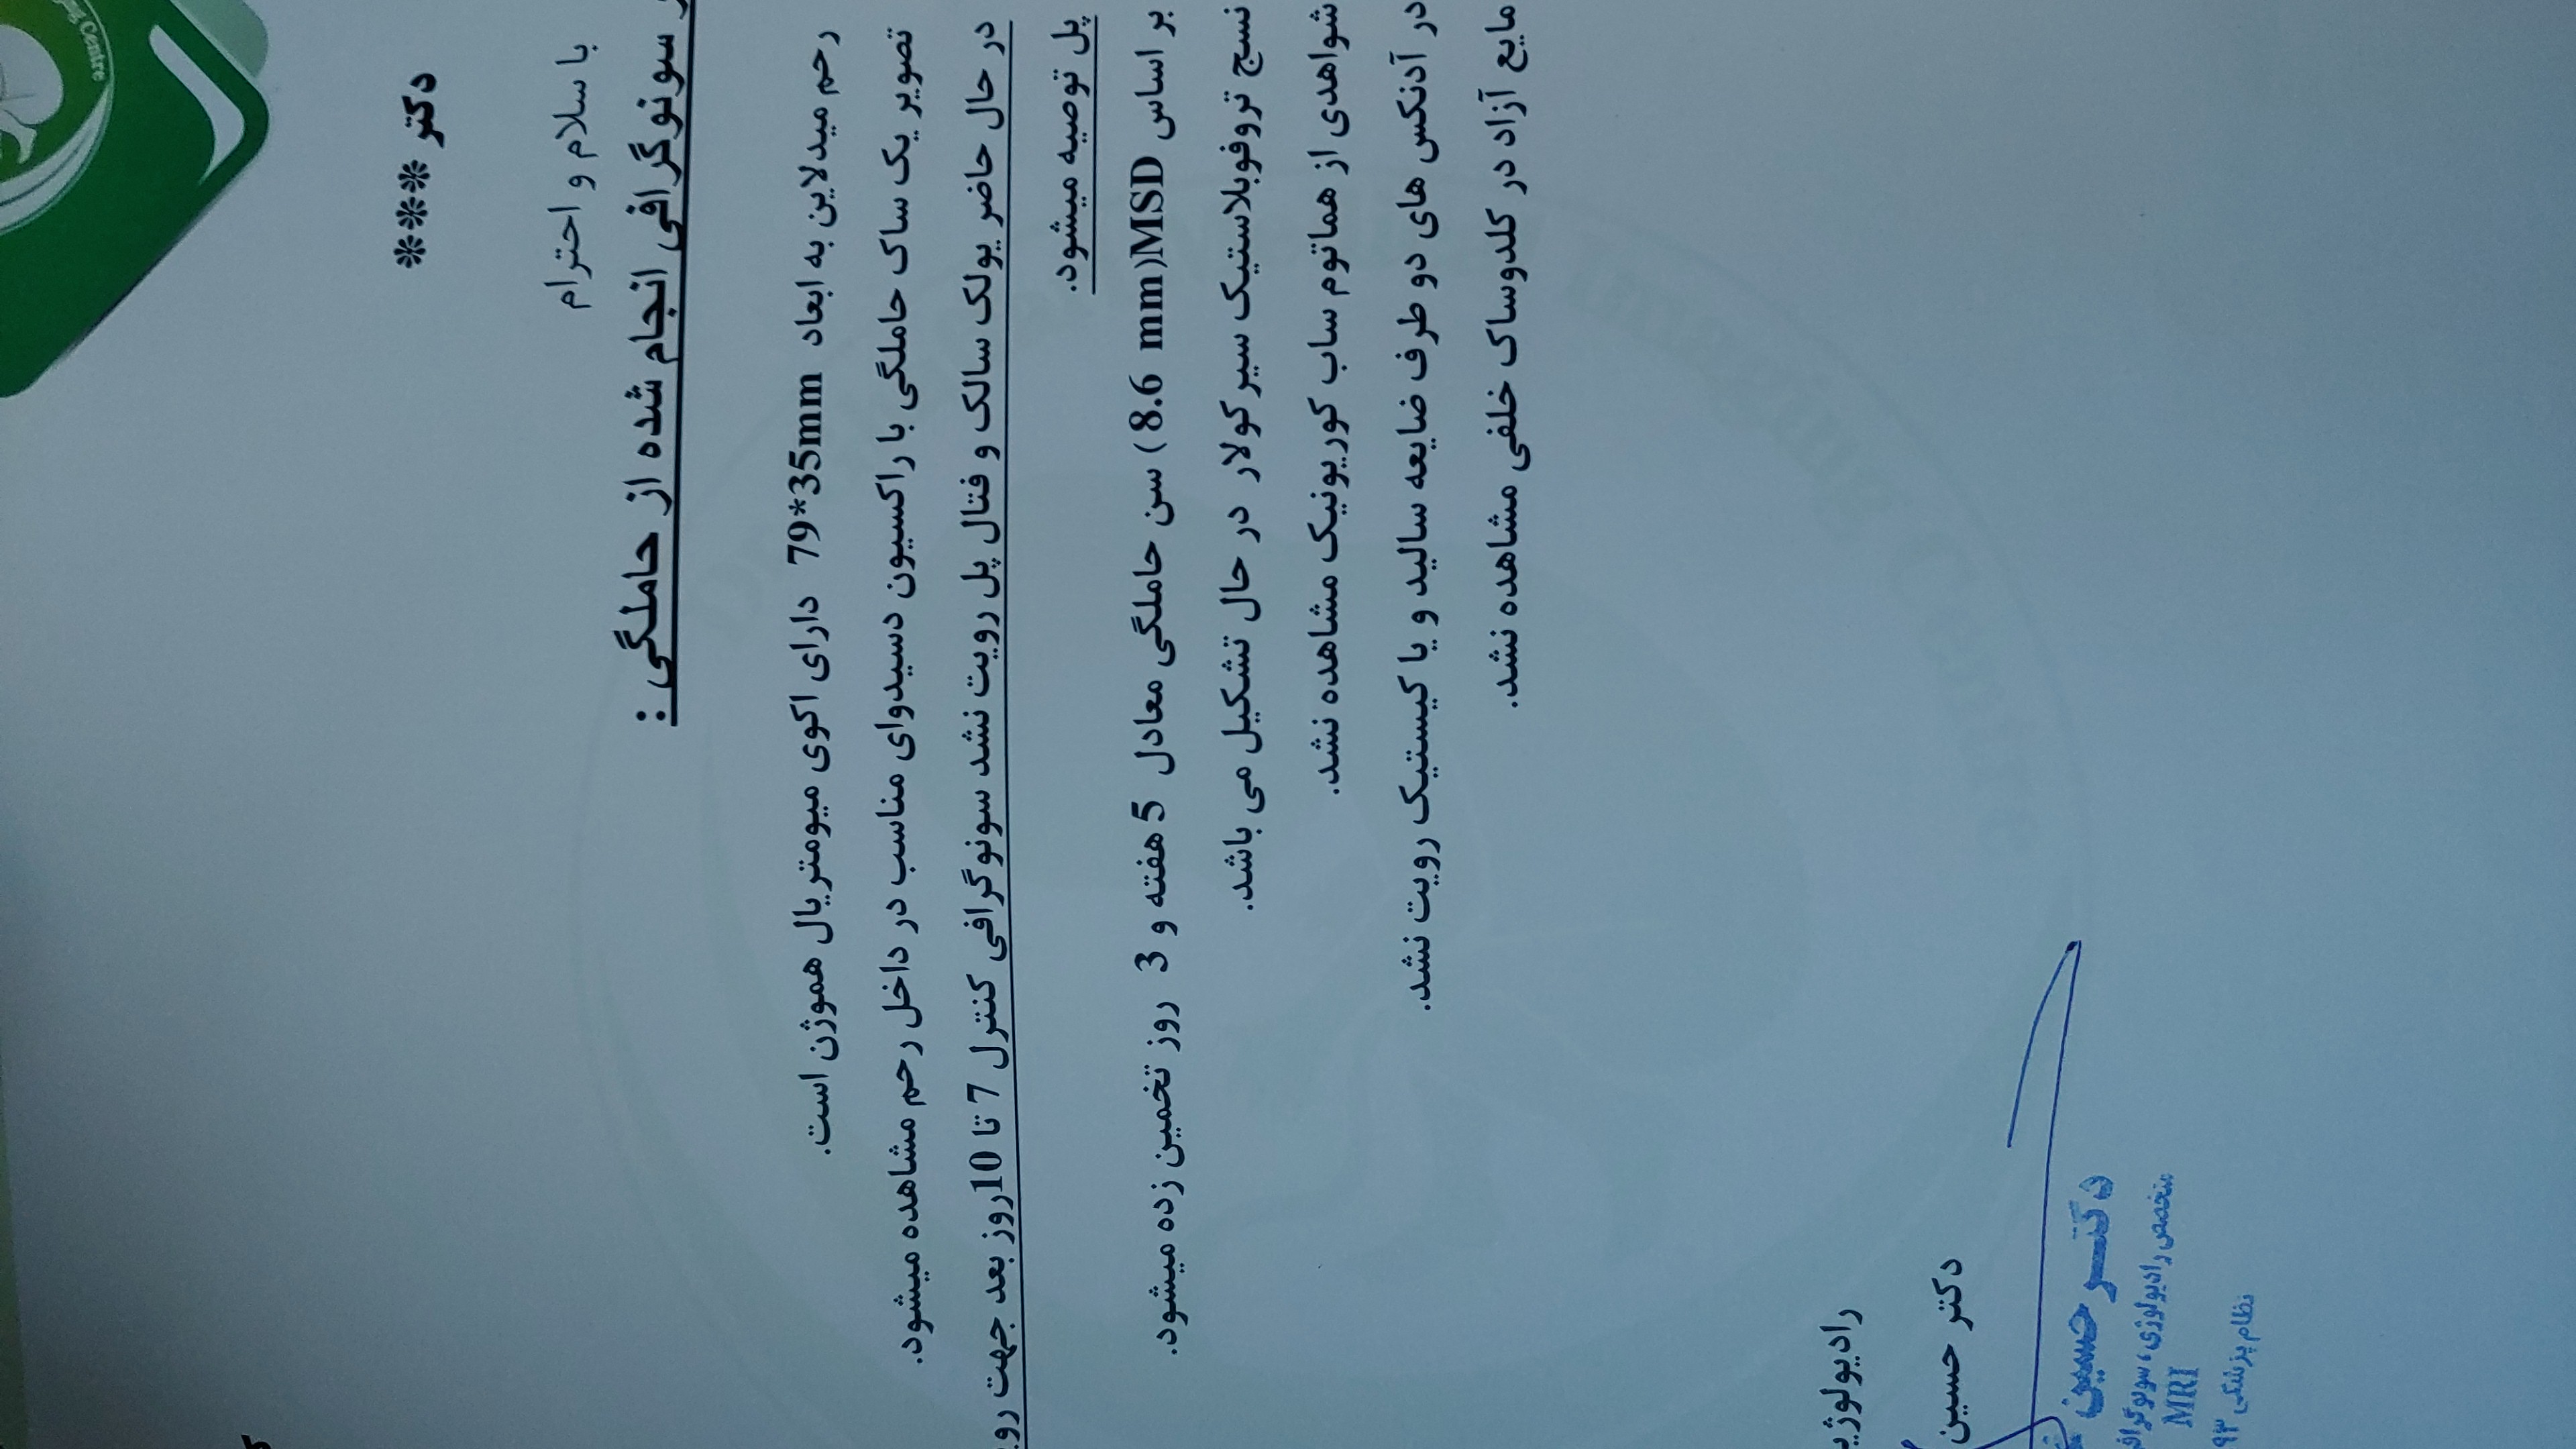 Centre
دکتر ****
با سلام و احترام
سونوگرافی انجام شده از حاملگی :
رحم میدلاین به ابعاد 79*35mm دارای اکوی میومتریال هموژن است.
تصویر یک ساک حاملگی با راکسیون دسیدوای مناسب در داخل رحم مشاهده میشود.
در حال حاضر یولک سالک و فتال پل رویت نشد سونوگرافی کنترل 7 تا 10روز بعد جهت
پل توصیه میشود.
بر اساس MSD(8.6 mm) سن حاملگی معادل 5هفته و 3 روز تخمین زده میشود.
نسج تروفوبلاستیک سیرکولار در حال تشکیل می باشد.
شواهدی از هماتوم ساب کوریونیک مشاهده نشد.
در آدنکس های دو طرف ضایعه سالید و یا کیستیک رویت نشد.
مایع آزاد در کلدوساک خلفی مشاهده نشد.
دکتر حسین
دکتر حسین
متخصص رادیولوژی، سونوگرافی
MRI
نظام پزشکی